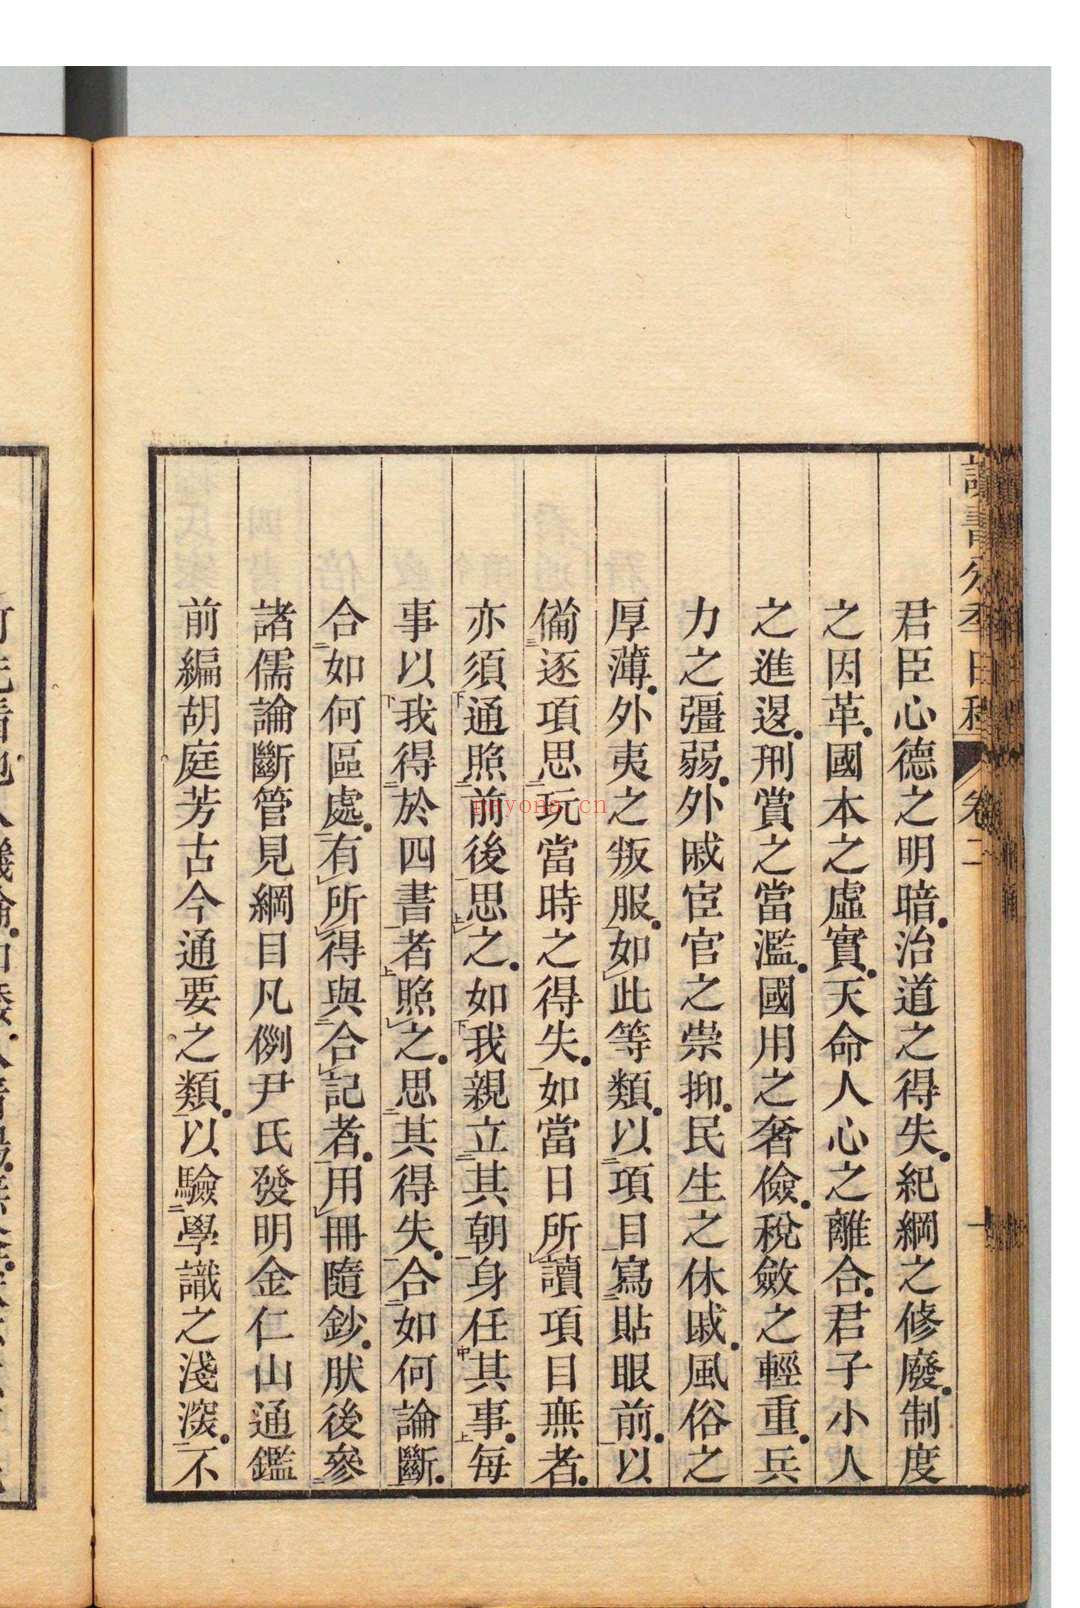 君臣心德之明暗治道之得失紀綱之修廢制度
之因革國本之虛實天命人心之離合君子小人
之進退刑賞之當濫國用之奢儉稅斂之輕重兵
力之彊弱外戚宦官之崇抑民生之休戚風俗之
厚薄外夷之叛服如此等類以項目寫貼眼前以
備逐項思玩當時之得失如當日所讀項目無者
亦須通照前後思之如我親立其朝身任其事每
事以我得於四書者照之思其得失合如何論斷
合如何區處有所得與合記者用冊隨鈔然後參
諸儒論斷管見綱目凡例尹氏發明金仁山通鑑
前編胡庭芳古今通要之類以驗學識之淺深不
讀書分年日程 卷二